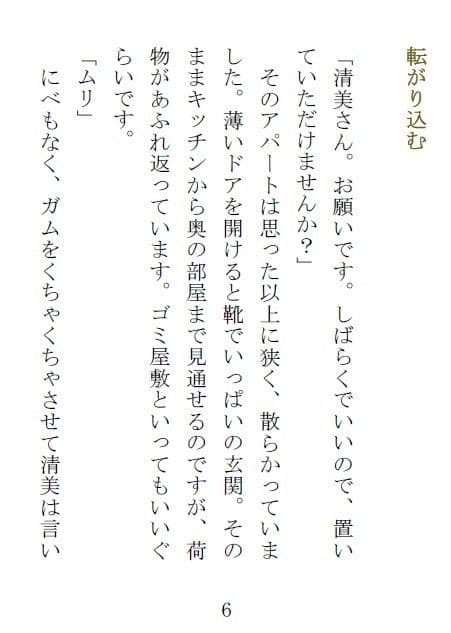 転がり込む
「清美さん。お願いです。しばらくでいいので、置い
ていただけませんか？」
そのアパートは思った以上に狭く、散らかっていま
した。薄いドアを開けると靴でいっぱいの玄関。その
ままキッチンから奥の部屋まで見通せるのですが、荷
物があふれ返っています。ゴミ屋敷といってもいいぐ
らいです。
「ムリ」
にべもなく、ガムをくちゃくちゃさせて清美は言い
6